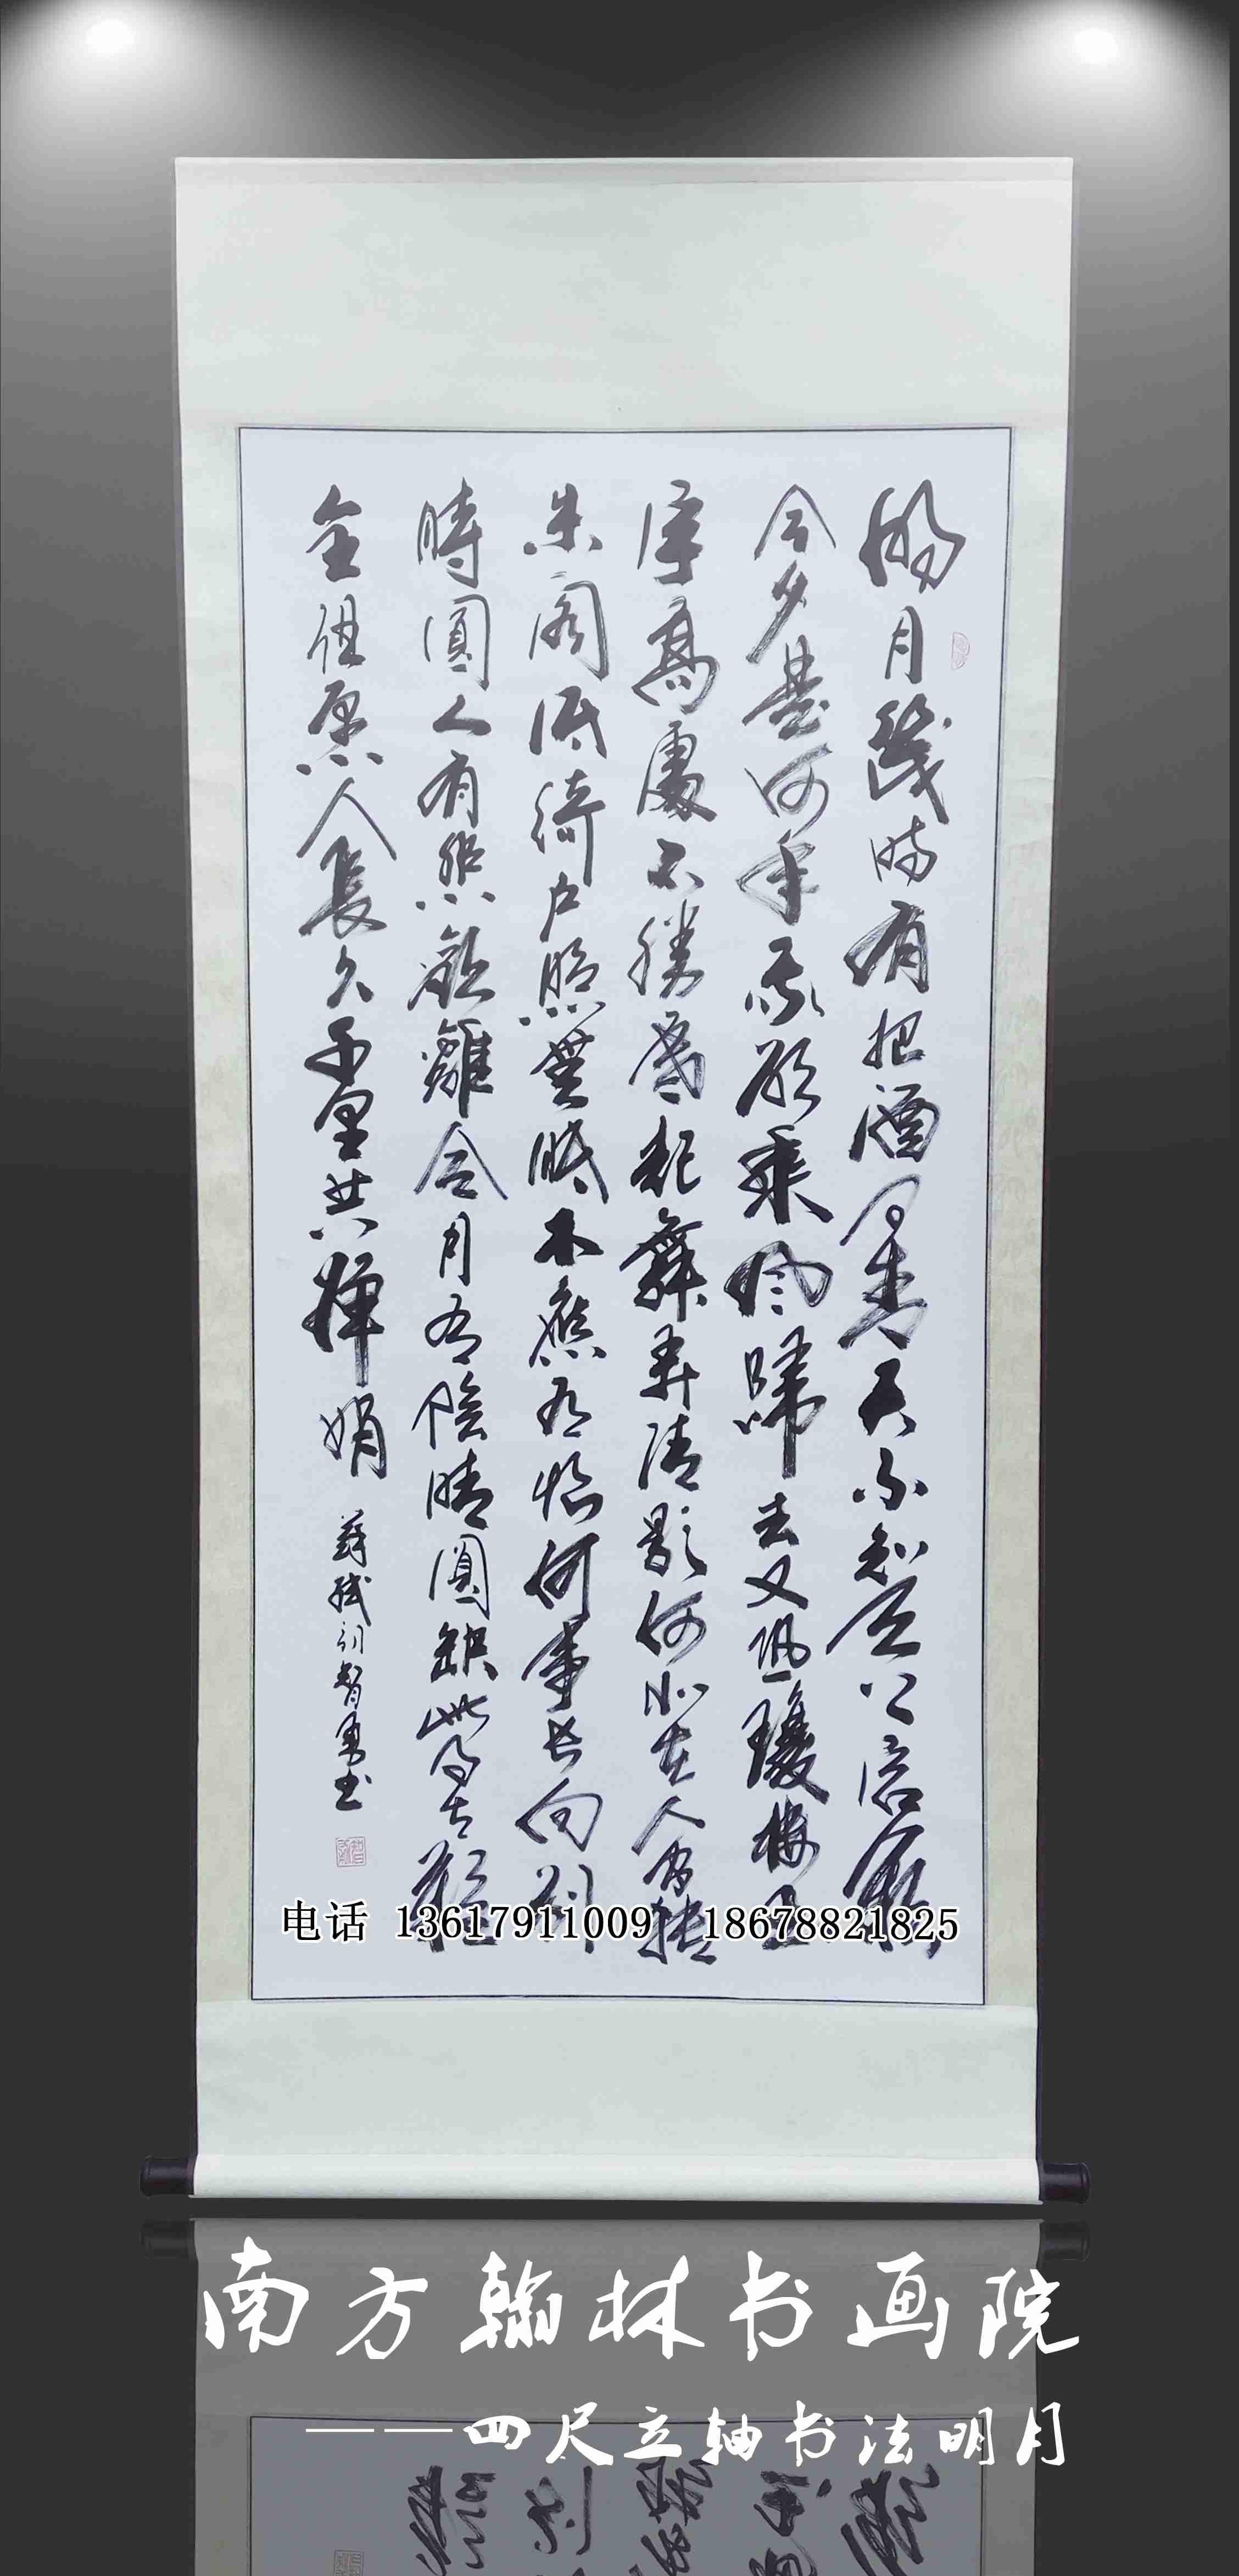 明月幾時有把酒問青天不知天上宮闕
今夕是何年我欲乘風歸去又恐瓊樓玉
宇高處不勝寒起舞弄清影何似在人間轉
朱閣低綺戶照無眠不應有恨何事長向別
時圓人有悲歡離合月有陰晴圓缺此事古難
全但願人長久千里共嬋娟
蘇軾詞智勇书
电话 13617911009 18678821825
南方翰林书画院
——四尺立轴书法明月